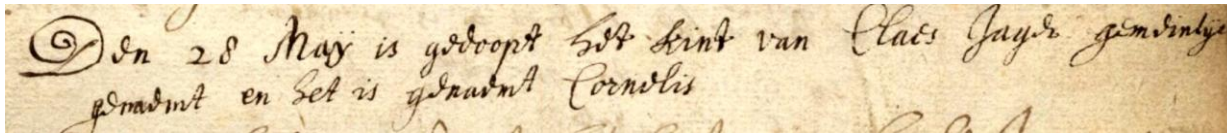 Den 28 Maÿ is gedoopt het kint van Claes Jager gemeinlyc
genaemt en het is genaemt Cornelis